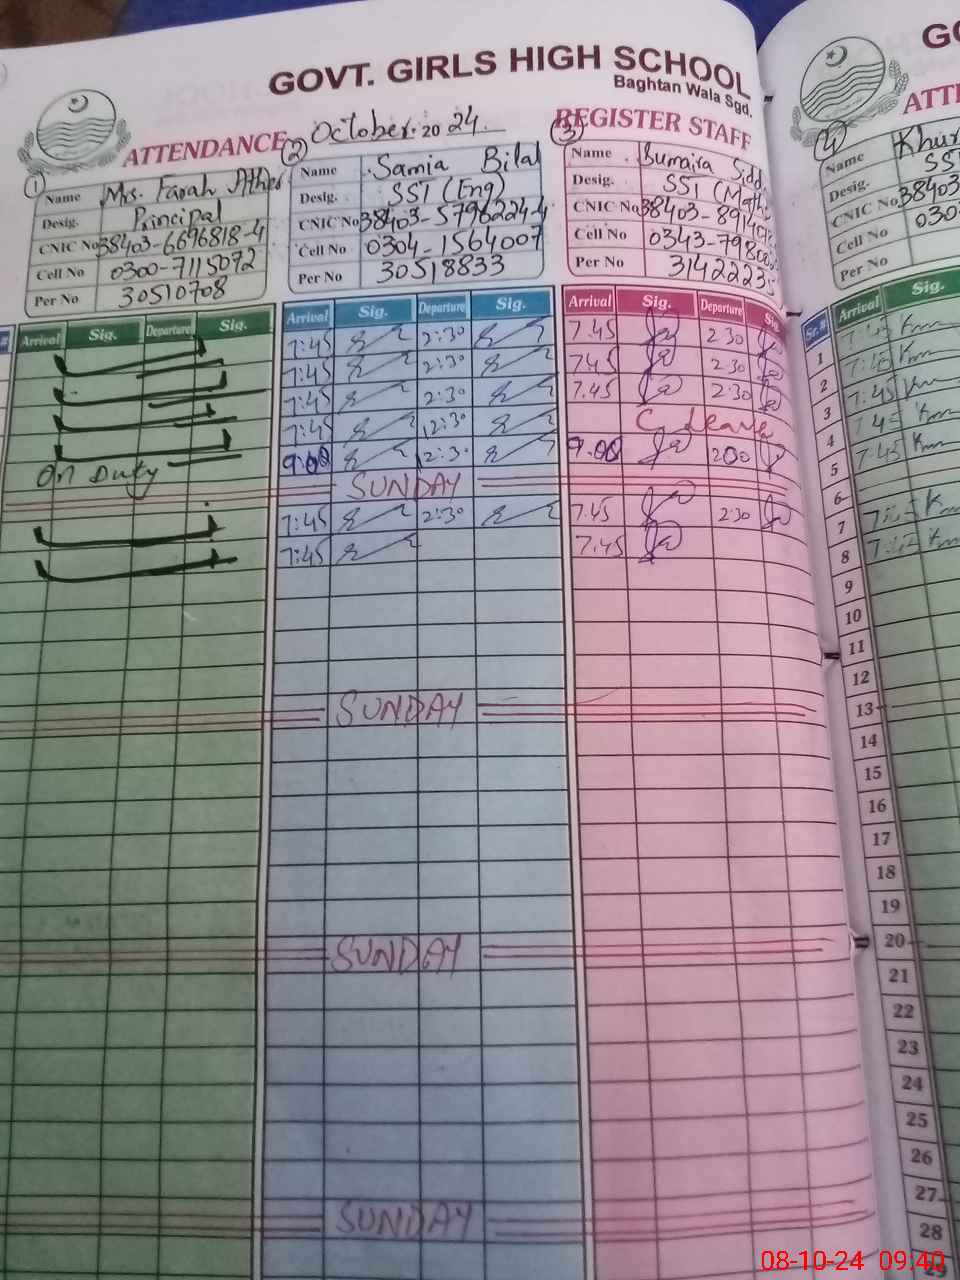 GOVT. GIRLS HIGH SCHOOL
Baghtan Wala Sgd.
ATTENDANCE October. 2024. REGISTER STAFF
(1)
Name Mrs. Farah Ather
Desig. Principal
CNIC No 38403-6696818-4
Cell No 0300-7115072
Per No 30510708
(2)
Name Samia Bilal
Desig. SST (Eng)
CNIC No 38403-5796224-4
Cell No 0304-1564007
Per No 30518833
(3)
Name Sumaira
Desig. SST (Math
CNIC No 38403-
Cell No 0343-
Per No 3142223
(4)
Name Khur
Desig. SST
CNIC No 38403
Cell No 030
Per No
Arrival Sig. Departure Sig. Arrival Sig. Departure Sig. Arrival Sig. Departure Sig. Sr.# Arrival Sig.
7:45 2:30 7.45 2.30 1
7:45 2:30 7.45 2.30 2 7:40
7:45 2:30 7.45 2.30 3 7:45
7:45 12:30 C. Leave 4 7:45
On Duty 9:00 12:30 9.00 200 5 7:45
SUNDAY 6
7:45 2:30 7.45 2:30 7
7:45 7.45 8
9
10
11
12
SUNDAY 13
14
15
16
17
18
19
SUNDAY 20
21
22
23
24
25
26
SUNDAY 27
28
29
08-10-24 09:40